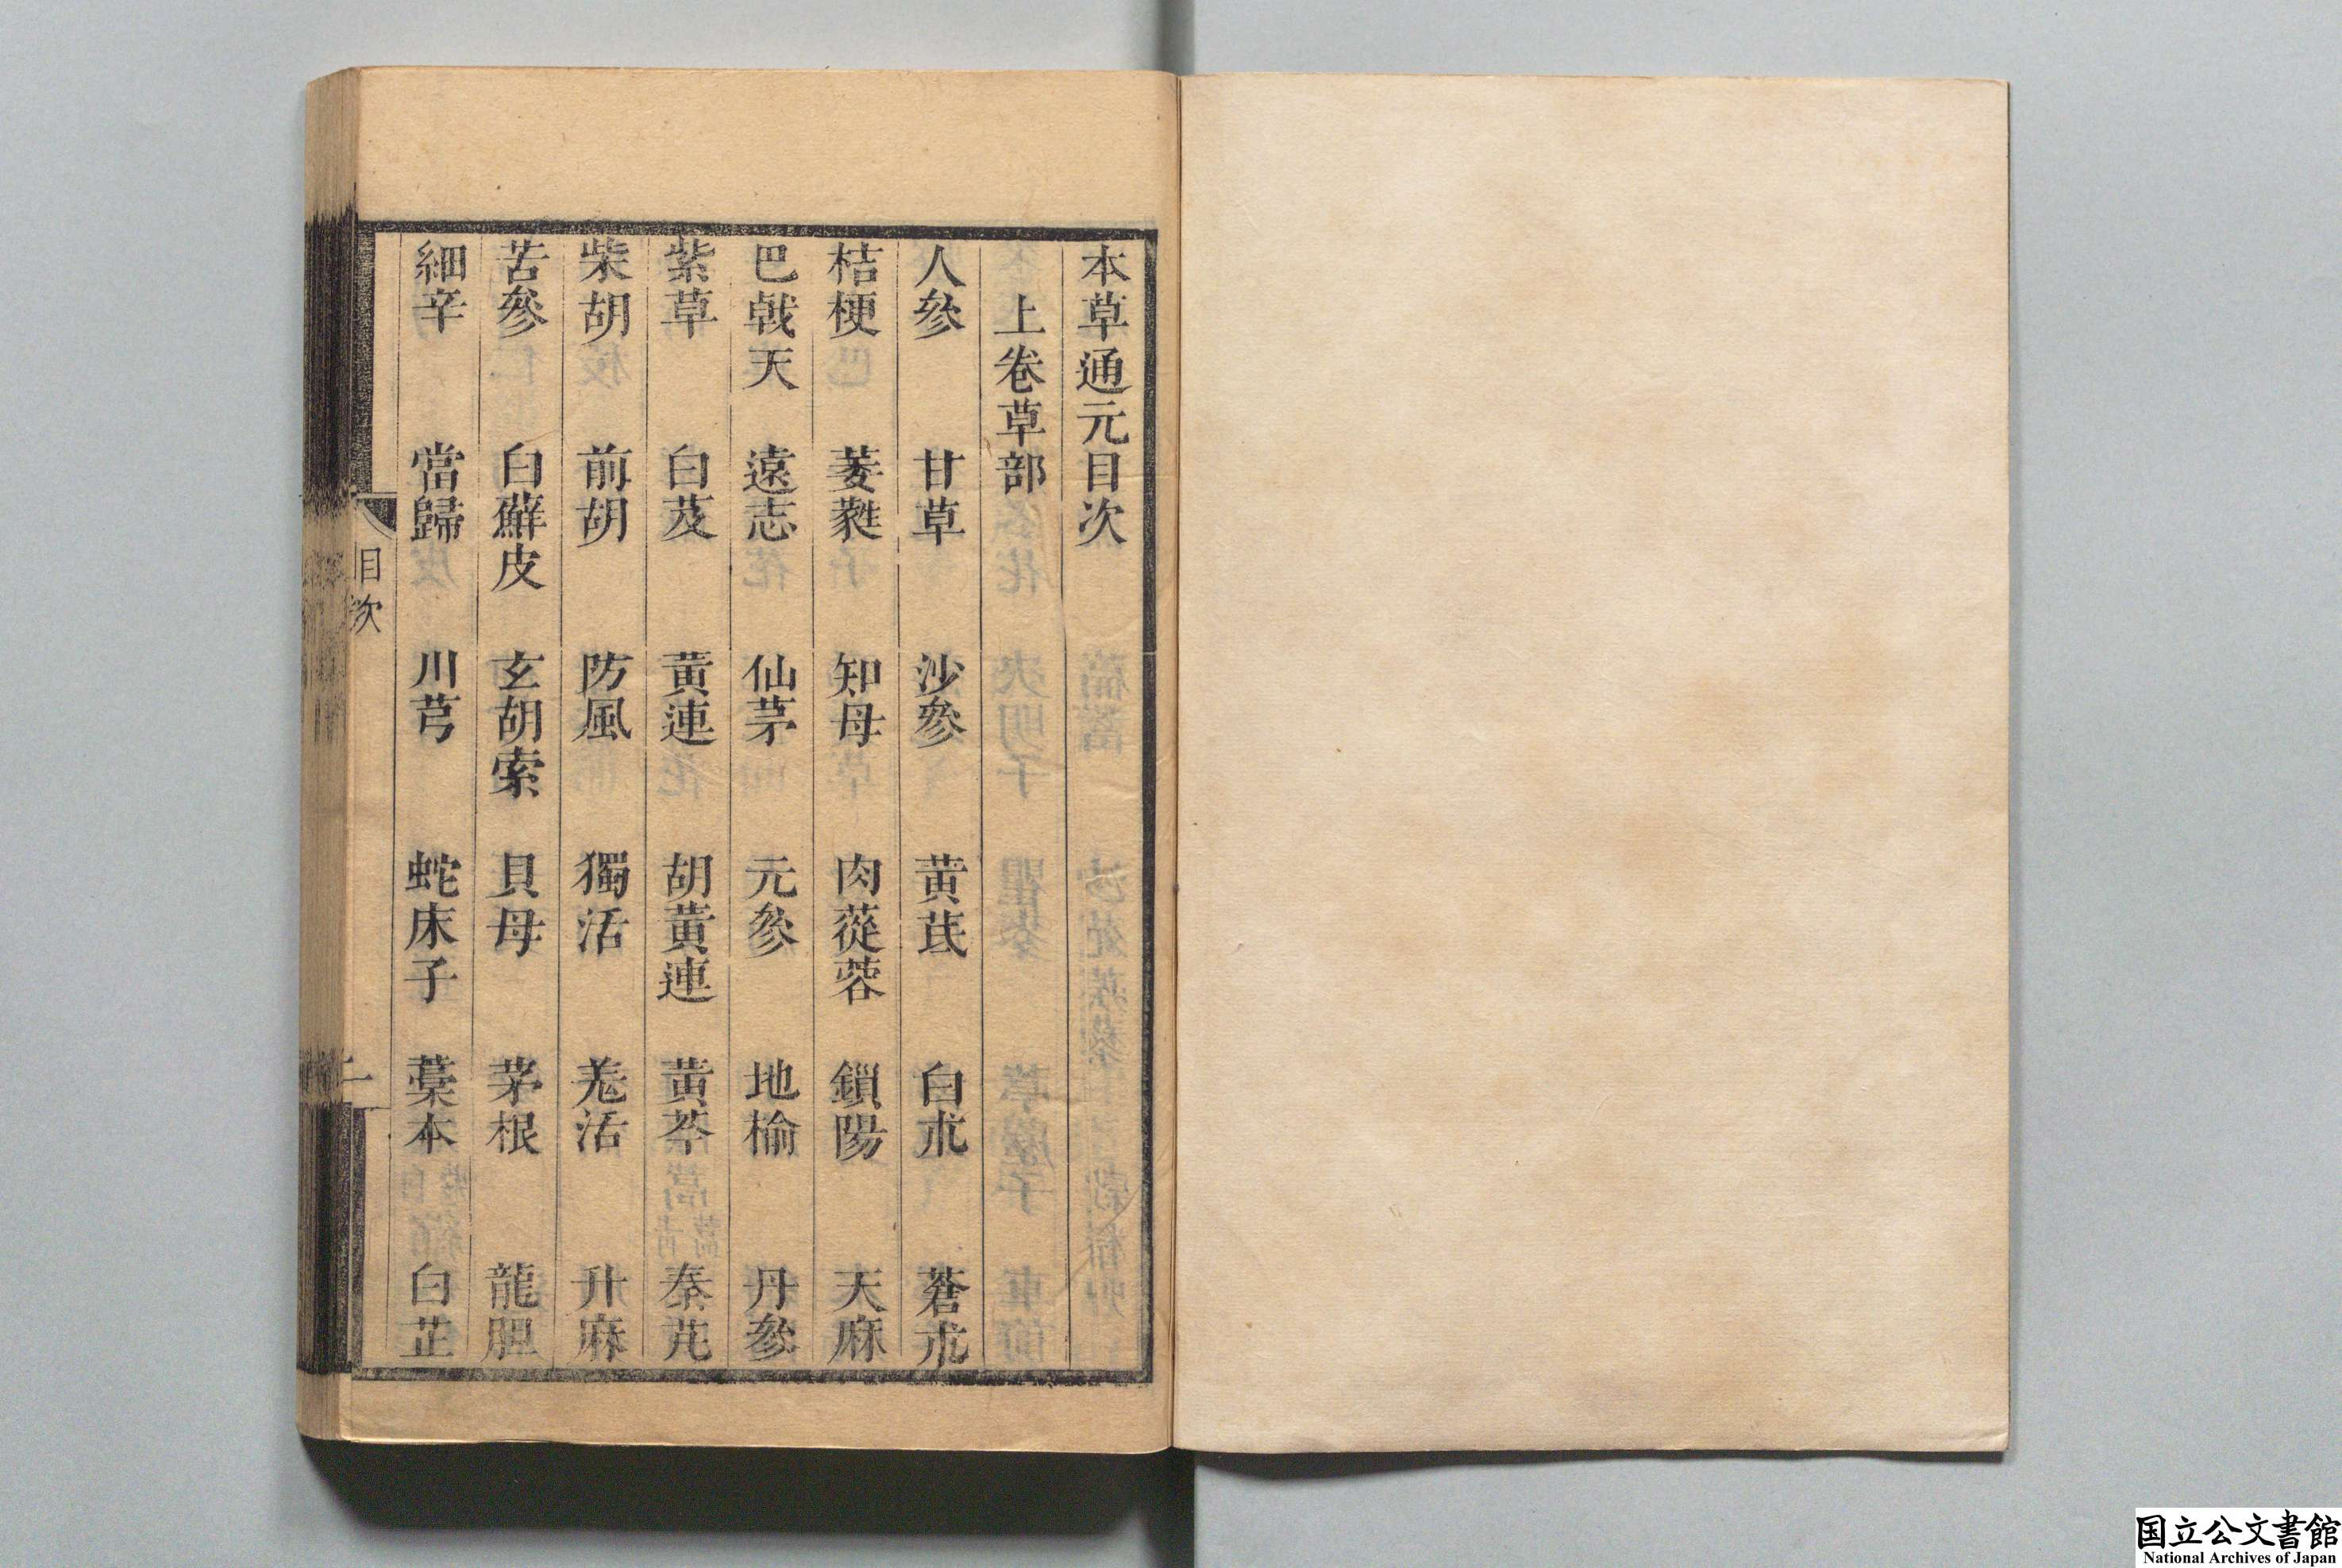 本草通元目次
上卷草部
人參 甘草 沙參 黃茋 白朮 蒼朮
桔梗 萎蕤 知母 肉蓯蓉 鎖陽 天麻
巴戟天 遠志 仙茅 元參 地榆 丹參
紫草 白芨 黃連 胡黃連 黃芩 秦艽
柴胡 前胡 防風 獨活 羗活 升麻
苦參 白蘚皮 玄胡索 貝母 茅根 龍胆
細辛 當歸 川芎 蛇床子 藁本 白芷
目次
一
国立公文書館
National Archives of Japan